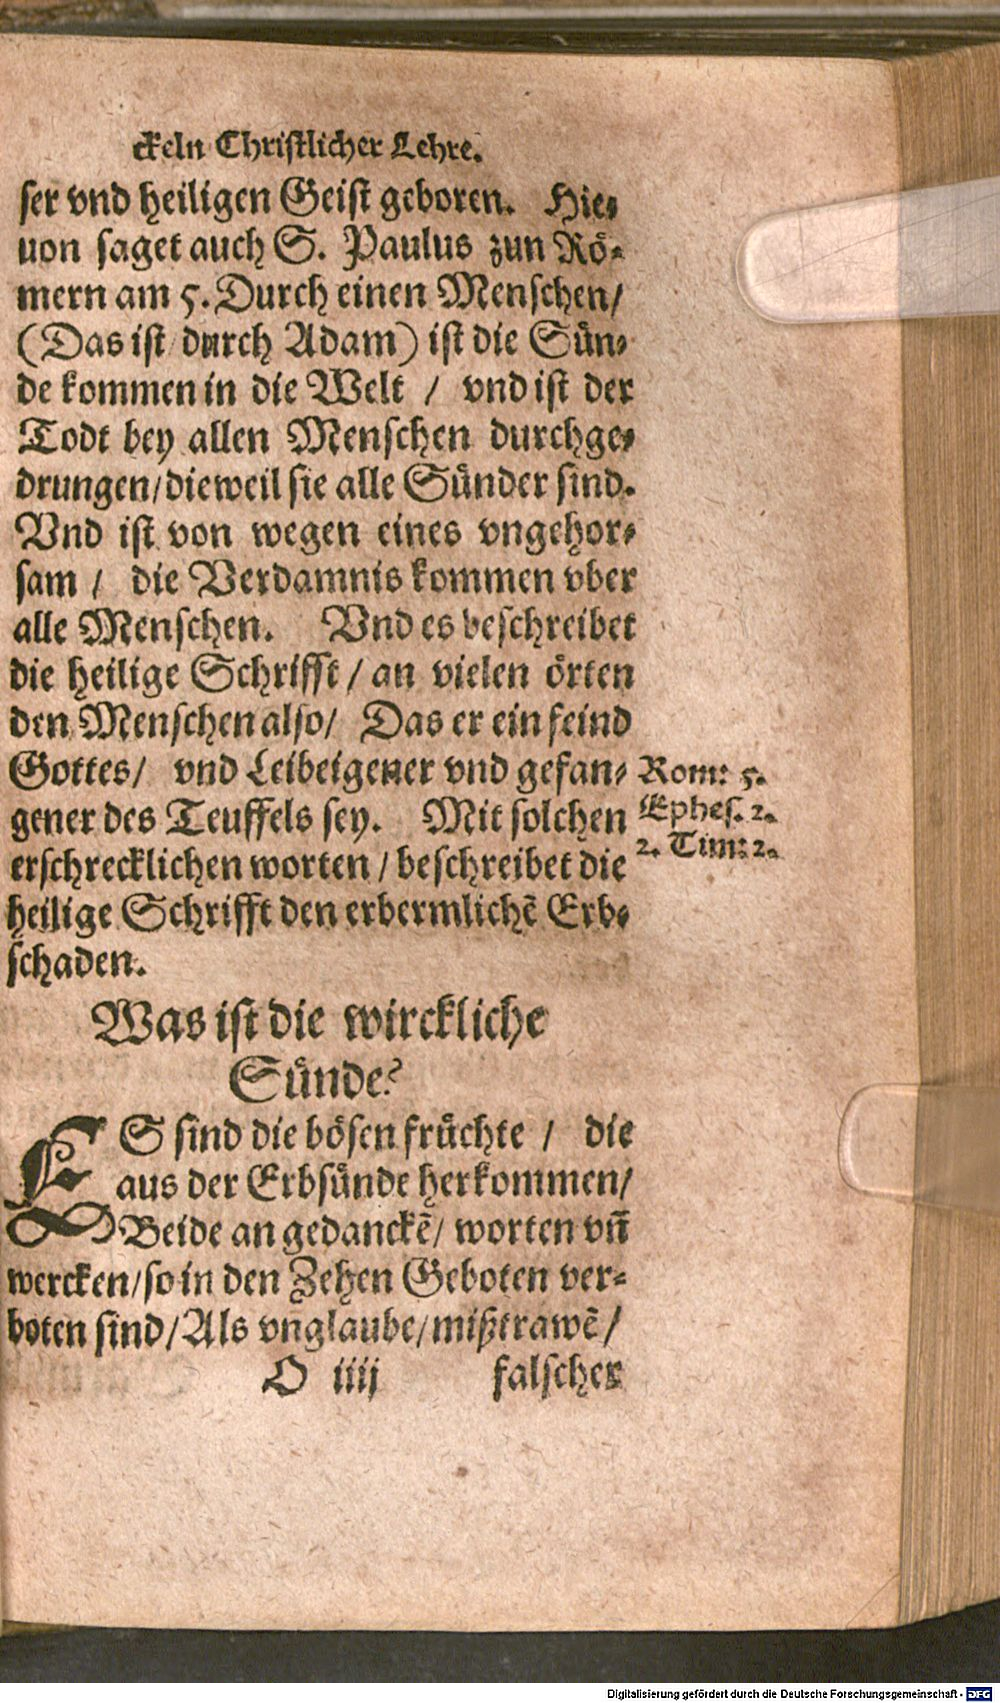 ckeln Christlicher Lehre.
ser vnd heiligen Geist geboren. Hie-
uon saget auch S. Paulus zun Rö-
mern am 5. Durch einen Menschen/
(Das ist durch Adam) ist die Sün-
de kommen in die Welt / vnd ist der
Todt bey allen Menschen durchge-
drungen/dieweil sie alle Sünder sind.
Vnd ist von wegen eines vngehor-
sam / die Verdamnis kommen vber
alle Menschen. Vnd es beschreibet
die heilige Schrifft / an vielen örten
den Menschen also/ Das er ein feind
Gottes/ vnd Leibeigener vnd gefan-
gener des Teuffels sey. Mit solchen
erschrecklichen worten / beschreibet die
heilige Schrifft den erbermlichē Erb-
schaden.
Rom: 5.
Ephes. 2.
2. Tim: 2.
Was ist die wirckliche
Sünde?
ES sind die bösen früchte / die
aus der Erbsünde herkommen/
Beide an gedanckē/ worten vn̄
wercken/so in den Zehen Geboten ver-
boten sind/Als vnglaube/mißtrawē/
O iiij falscher
Digitalisierung gefördert durch die Deutsche Forschungsgemeinschaft - DFG